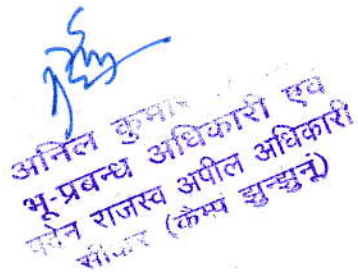 अनिल कुमार
भू-प्रबन्ध अधिकारी एवं
पदेन राजस्व अपील अधिकारी
सीकर (कैम्प झुन्झुनूं)